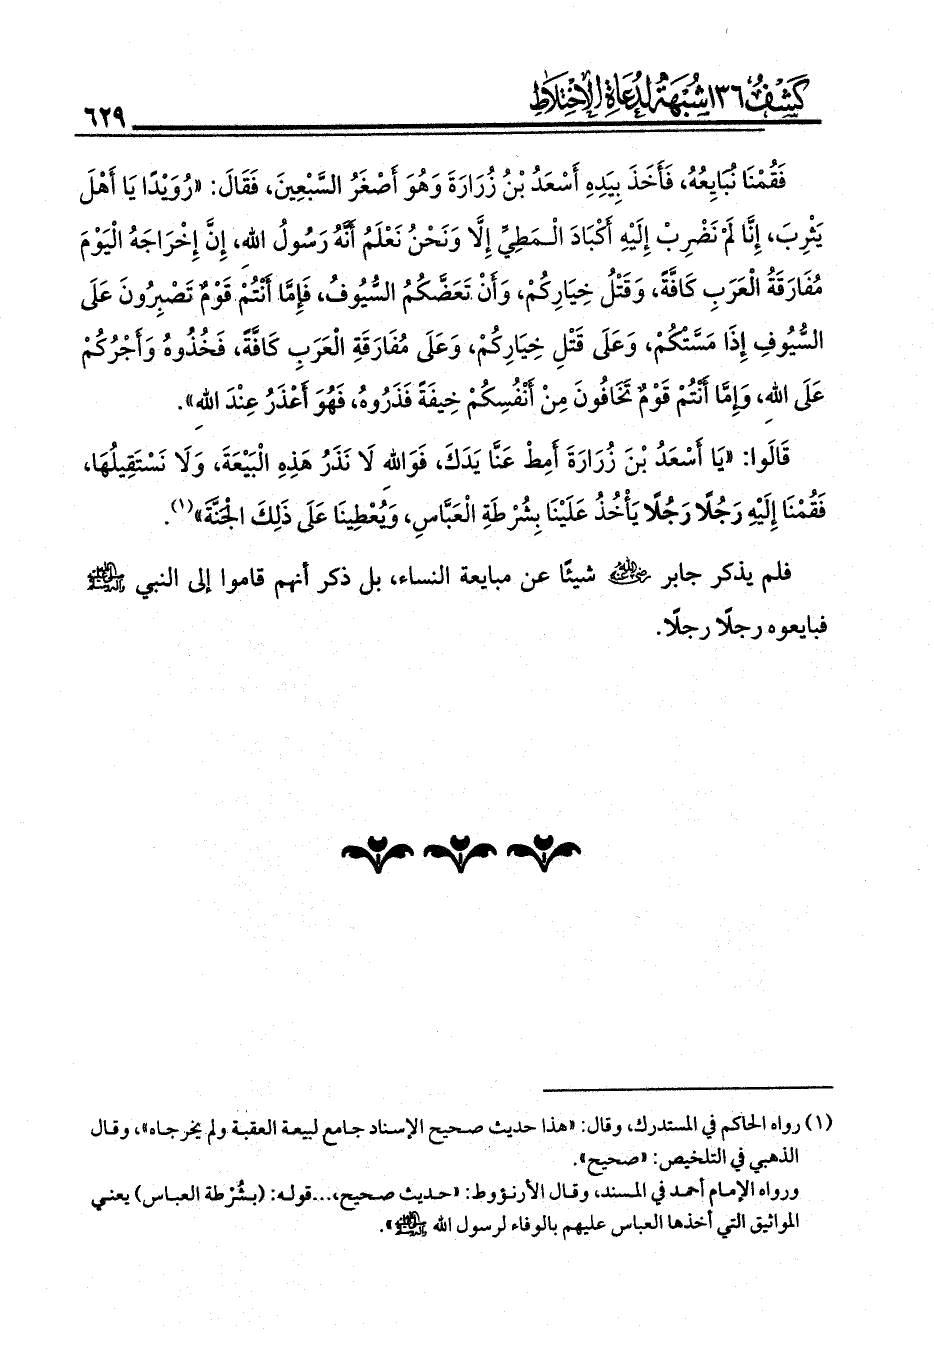 كَشْفُ ١٣٦ شُبْهَةً لِدُعَاةِ الِاخْتِلَاطِ
٦٢٩
فَقُمْنَا نُبَايِعُهُ، فَأَخَذَ بِيَدِهِ أَسْعَدُ بْنُ زُرَارَةَ وَهُوَ أَصْغَرُ السَّبْعِينَ، فَقَالَ: «رُوَيْدًا يَا أَهْلَ
يَثْرِبَ، إِنَّا لَمْ نَضْرِبْ إِلَيْهِ أَكْبَادَ الْمَطِيِّ إِلَّا وَنَحْنُ نَعْلَمُ أَنَّهُ رَسُولُ اللهِ، إِنَّ إِخْرَاجَهُ الْيَوْمَ
مُفَارَقَةُ الْعَرَبِ كَافَّةً، وَقَتْلُ خِيَارِكُمْ، وَأَنْ تَعَضَّكُمُ السُّيُوفُ، فَإِمَّا أَنْتُمْ قَوْمٌ تَصْبِرُونَ عَلَى
السُّيُوفِ إِذَا مَسَّتْكُمْ، وَعَلَى قَتْلِ خِيَارِكُمْ، وَعَلَى مُفَارَقَةِ الْعَرَبِ كَافَّةً، فَخُذُوهُ وَأَجْرُكُمْ
عَلَى اللهِ، وَإِمَّا أَنْتُمْ قَوْمٌ تَخَافُونَ مِنْ أَنْفُسِكُمْ خِيفَةً فَذَرُوهُ، فَهُوَ أَعْذَرُ عِنْدَ اللهِ».
قَالُوا: «يَا أَسْعَدُ بْنَ زُرَارَةَ أَمِطْ عَنَّا يَدَكَ، فَوَاللهِ لَا نَذَرُ هَذِهِ الْبَيْعَةَ، وَلَا نَسْتَقِيلُهَا،
فَقُمْنَا إِلَيْهِ رَجُلًا رَجُلًا يَأْخُذُ عَلَيْنَا بِشُرْطَةِ الْعَبَّاسِ، وَيُعْطِينَا عَلَى ذَلِكَ الْجَنَّةَ»(١).
فلم يذكر جابر رضي الله عنه شيئًا عن مبايعة النساء، بل ذكر أنهم قاموا إلى النبي ﷺ
فبايعوه رجلًا رجلًا.
(١) رواه الحاكم في المستدرك، وقال: «هذا حديث صحيح الإسناد جامع لبيعة العقبة ولم يخرجاه»، وقال
الذهبي في التلخيص: «صحيح».
ورواه الإمام أحمد في المسند، وقال الأرنؤوط: «حديث صحيح،...قوله: (بشُرْطة العباس) يعني
المواثيق التي أخذها العباس عليهم بالوفاء لرسول الله ﷺ».